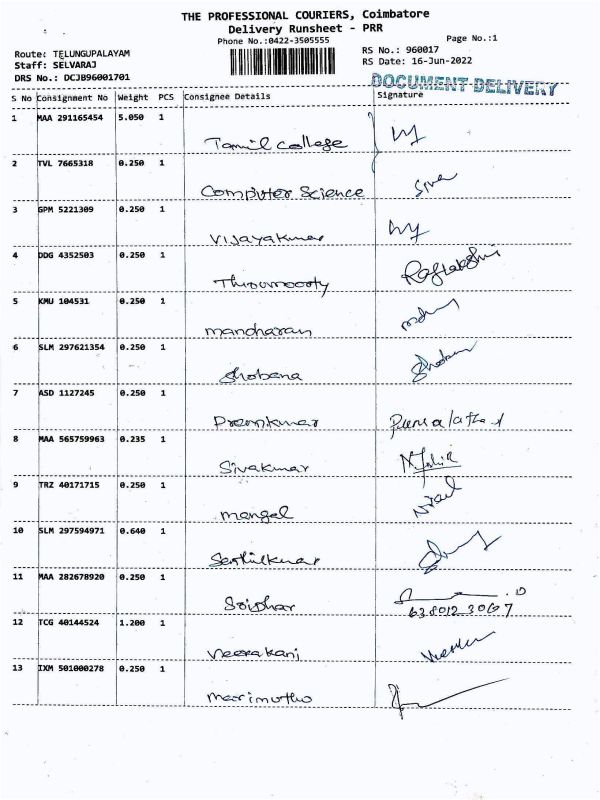 THE PROFESSIONAL COURIERS, Coimbatore
Delivery Runsheet - PRR
Phone No.:0422-3505555
Page No.:1
Route: TELUNGUPALAYAM
RS No.: 960017
Staff: SELVARAJ
RS Date: 16-Jun-2022
DRS No.: DCJB96001701
DOCUMENT DELIVERY
S No Consignment No Weight PCS Consignee Details Signature
1 MAA 291165454 5.050 1
Tamil College
2 TVL 7665318 0.250 1
Computer Science Siva
3 GPM 5221309 0.250 1
Vijayakumar
4 DDG 4352503 0.250 1
Thirumoorty Rajlakshmi
5 KMU 104531 0.250 1
manoharan
6 SLM 297621354 0.250 1
Shobana Shobana
7 ASD 1127245 0.250 1
Premkumar
8 MAA 565759963 0.235 1
Sivakumar
9 TRZ 40171715 0.250 1
mangal
10 SLM 297594971 0.640 1
Senthilkumar
11 MAA 282678920 0.250 1
Sridhar 638012 3067
12 TCG 40144524 1.200 1
Veerakani
13 IXM 501000278 0.250 1
marimuthu